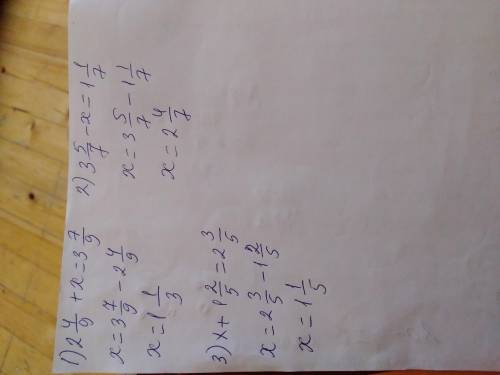 1) 2 4/9 + x = 3 7/9
x = 3 7/9 - 2 4/9
x = 1 1/3
2) 3 5/7 - x = 1 1/7
x = 3 5/7 - 1 1/7
x = 2 4/7
3) x + 1 2/5 = 2 3/5
x = 2 3/5 - 1 2/5
x = 1 1/5